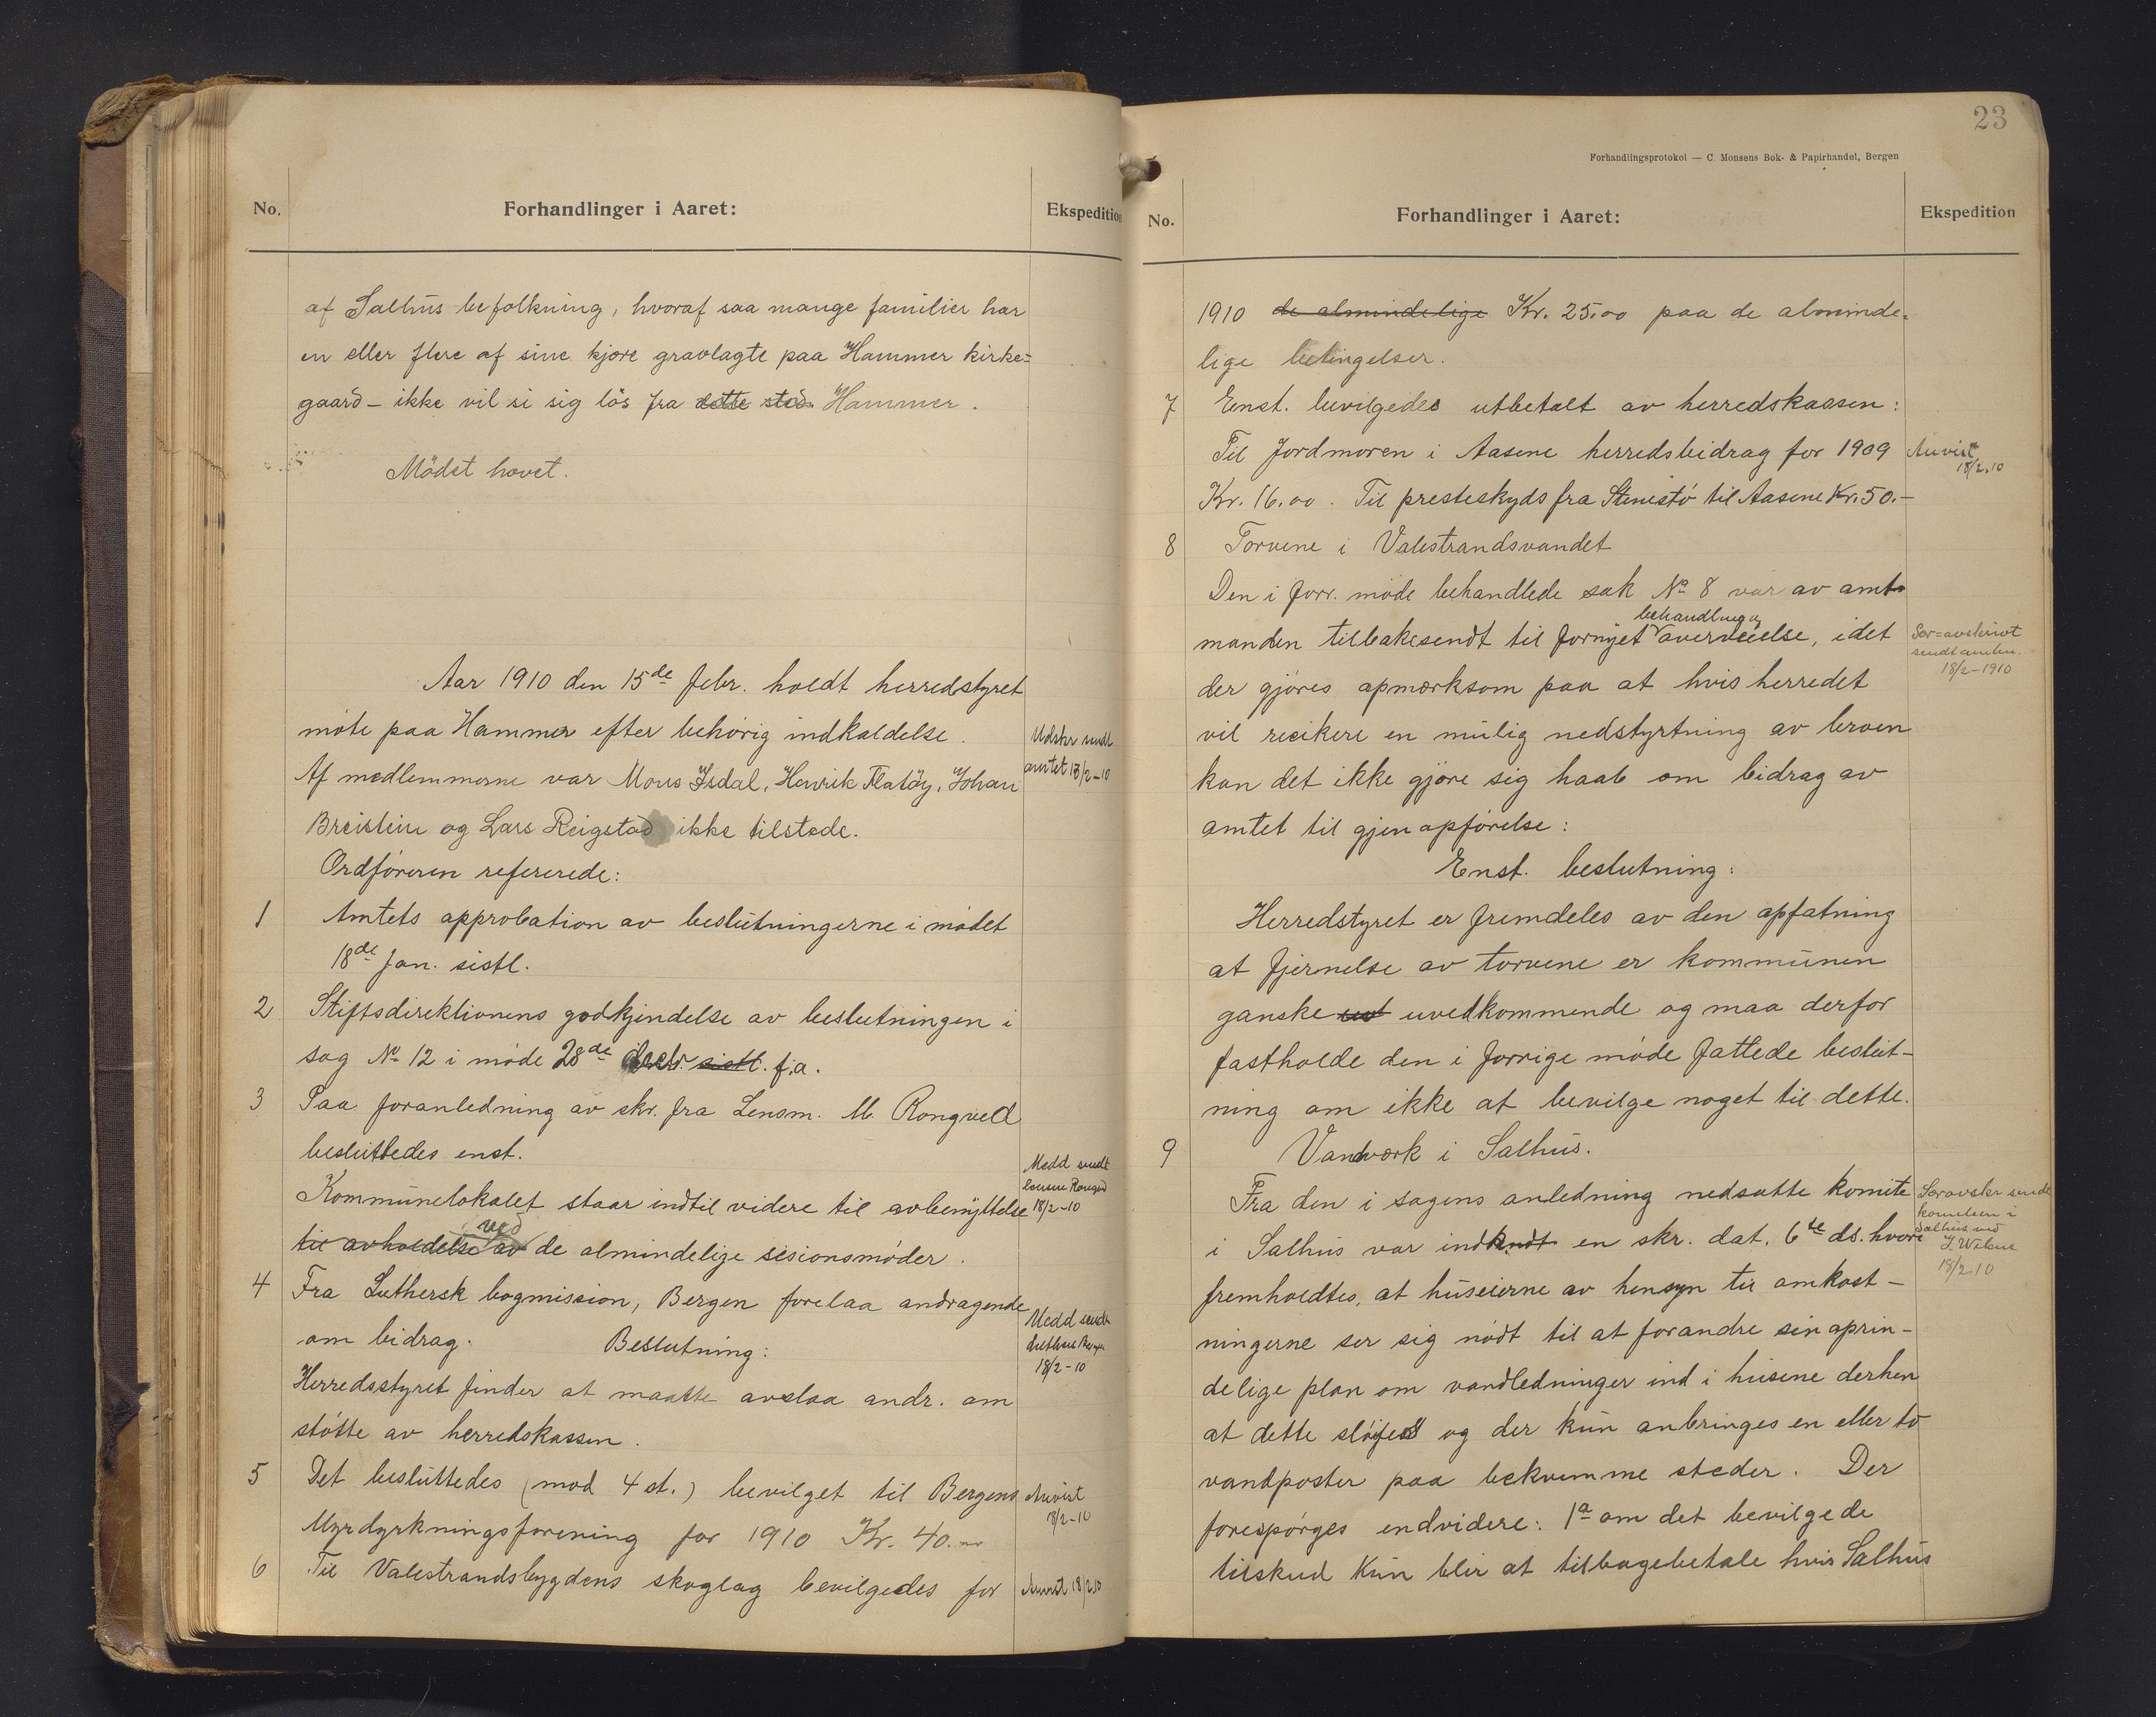 No.
Forhandlinger i Aaret:
Ekspedition
af Salhus befolkning, hvoraf saa mange familier har
en eller flere af sine kjære gravlagte paa Hammer kirke=
gaard - ikke vil si sig lös fra dette sted. Hammer.
Mödet hævet.
Aar 1910 den 15de febr. holdt herredstyret
möte paa Hammer efter behörig indkaldelse.
Udskr sendt
amtet 18/2-10
Af medlemmerne var Mons Isdal, Henrik Flatöy, Johan
Breistein og Lars Reigstad ikke tilstede.
Ordföreren refererede:
1 Amtets approbation av beslutningerne i mödet
18de Jan. sistl.
2 Stiftsdirektionens godkjendelse av beslutningen i
sag No 12 i möde 28de decbr. sistl. f.a.
3 Paa foranledning av skr. fra Lensm. M. Rongved
besluttedes enst.
Medd sendt
18/2-10
Kommunelokalet staar indtil videre til avbenyttelse
til avholdelse av ved de almindelige sesionsmöder.
4 Fra Luthersk bogmission, Bergen forelaa andragende
om bidrag. Beslutning:
Medd sendt
18/2-10
Herredsstyret finder at maatte avslaa andr. om
stötte av herredskassen.
5 Det besluttedes (mod 4 st.) bevilget til Bergens
Anvist
18/2-10
Myrdyrkningsforening for 1910 Kr. 40.00
6 Til Valestrandsbygdens skoglag bevilgedes for
Anvist 18/2 10
23
Forhandlingsprotokol — C. Monsens Bok- & Papirhandel, Bergen
No.
Forhandlinger i Aaret:
Ekspedition
1910 de almindelige Kr. 25.00 paa de alminde=
lige betingelser.
7 Enst. bevilgedes utbetalt av herredskassen:
Til Jordmoren i Aasene herredsbidrag for 1909
Anvist
18/2.10
Kr. 16.00. Til presteskyds fra Stenestö til Aasene Kr. 50.-
8 Torvene i Valestrandsvandet
Den i forr. möde behandlede sak No 8 var av amt-
manden tilbakesendt til fornyet behandling og overveielse, idet
Sær=avskrivt
sendt amtm.
18/2-1910
der gjöres opmærksom paa at hvis herredet
vil risikere en mulig nedstyrtning av broen
kan det ikke gjöre sig haab om bidrag av
amtet til gjenopförelse:
Enst. beslutning:
Herredstyret er fremdeles av den opfatning
at fjernelse av torvene er kommunen
ganske uvedkommende og maa derfor
fastholde den i forrige möde fattede beslut-
ning om ikke at bevilge noget til dette.
9 Vandværk i Salhus.
Fra den i sagens anledning nedsatte komite
Særavskr sendt
komiteen i
Salhus ved
18/2.10
i Salhus var indsendt en skr. dat. 6te ds. hvori
fremholdtes, at huseierne av hensyn til omkost-
ningerne ser sig nödt til at forandre sin oprin-
delige plan om vandledninger ind i husene derhen
at dette slöifes og der kun anbringes en eller to
vandposter paa bekvemme steder. Der
forespörges endvidere: 1a om det bevilgede
tilskud kun blir at tilbagebetale hvis Salhus